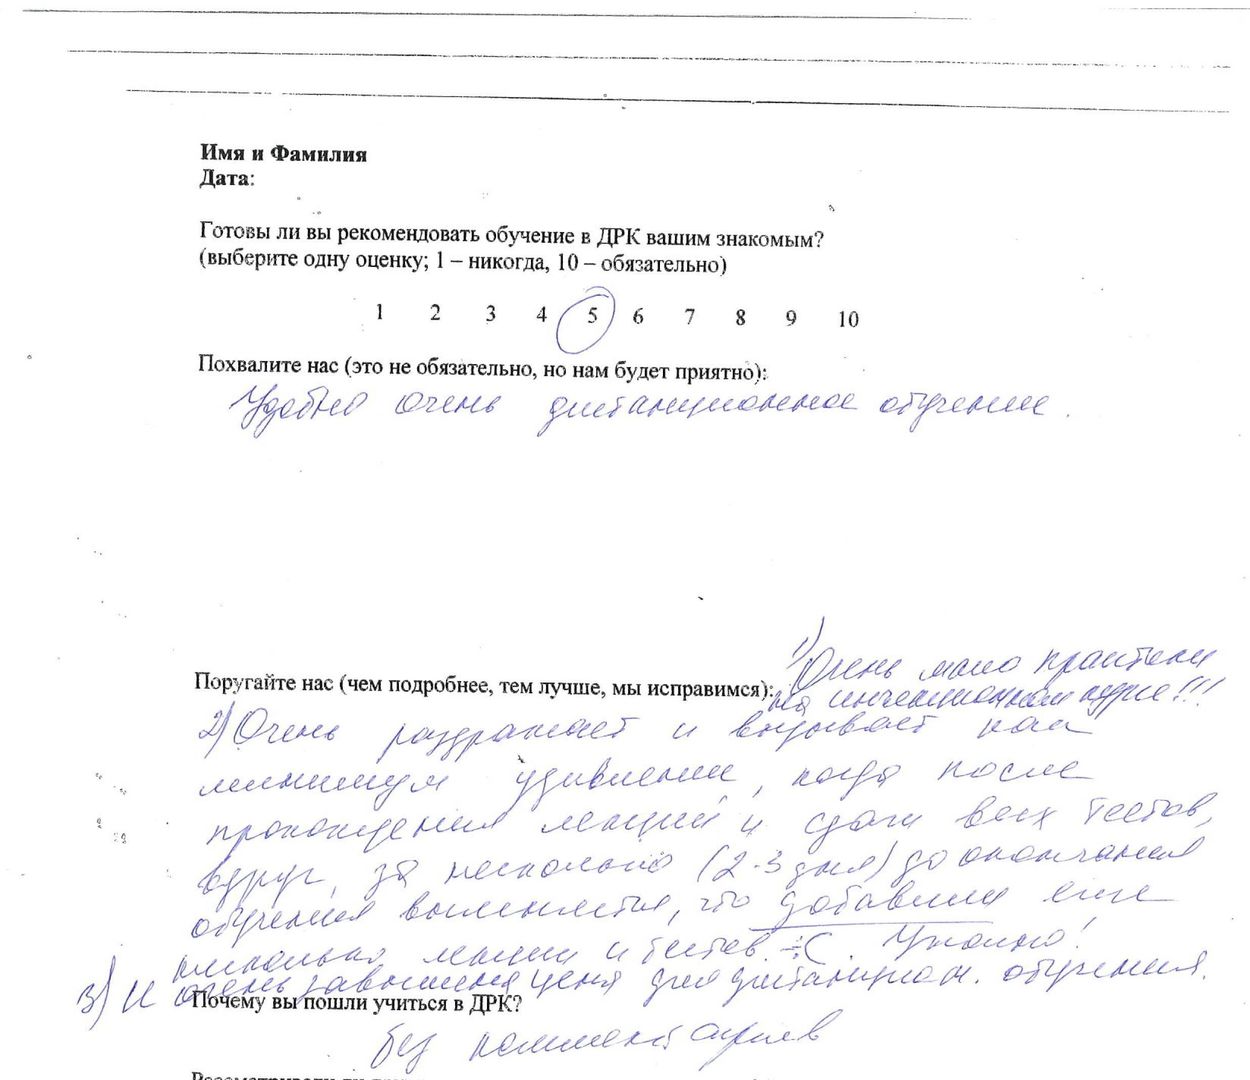 Имя и Фамилия
Дата:
Готовы ли вы рекомендовать обучение в ДРК вашим знакомым?
(выберите одну оценку; 1 – никогда, 10 – обязательно)
1 2 3 4 5 6 7 8 9 10
Похвалите нас (это не обязательно, но нам будет приятно):
Удобно очень дистанционное обучение.
1) Очень мало практики
Поругайте нас (чем подробнее, тем лучше, мы исправимся):
на инъекционном курсе!!!
2) Очень раздражает и вызывает как
минимум удивление, когда после
прохождения лекций и сдачи всех тестов,
вдруг, за несколько (2-3 дня) до окончания
обучения выясняется, что добавили еще
несколько лекций и тестов. Ужасно!
3) И очень завышена цена для дистанцион. обучения.
Почему вы пошли учиться в ДРК?
без комментариев